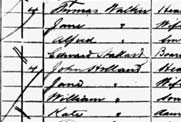 4 Thomas Walker Head
Jane " Wife
Alfred " Son
Edward Ballard Boar
4 John Holland Head
Jane " Wife
William " Son
Kate " daur